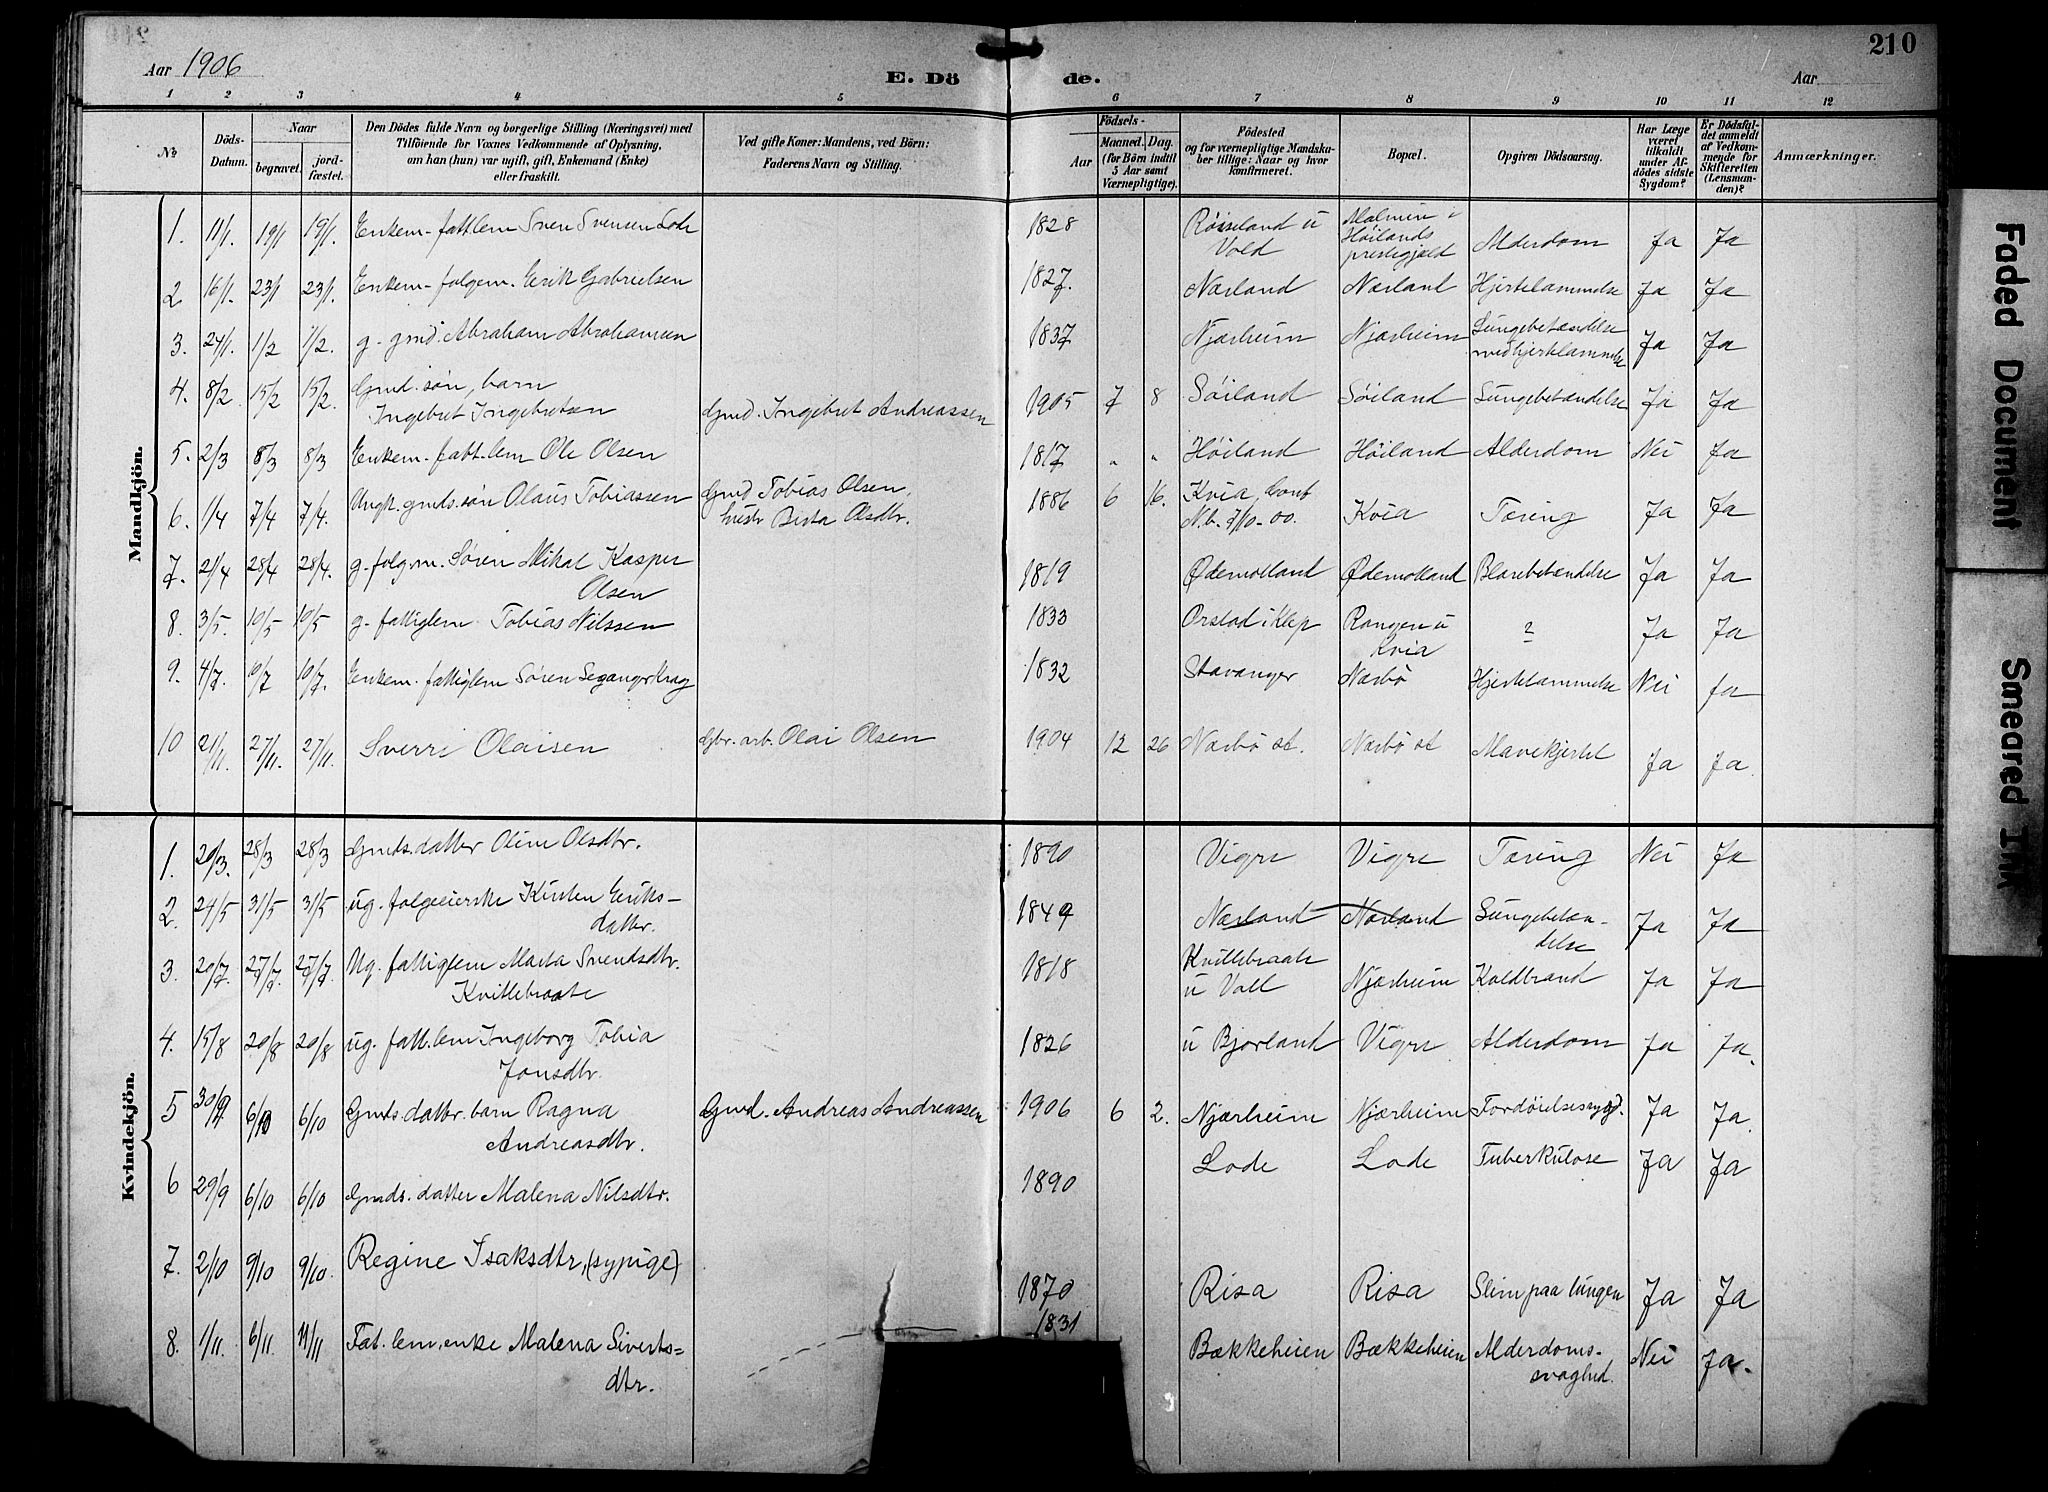 210
Aar 1906
E. Dö de.
Aar
1 2 3 4 5 6 7 8 9 10 11 12
No.
Döds-Datum.
Naar
begravet.
jord-fæstet.
Den Dödes fulde Navn og borgerlige Stilling (Næringsvei) med
Tilföiende for Voxnes Vedkommende af Oplysning,
om han (hun) var ugift, gift, Enkemand (Enke)
eller fraskilt.
Ved gifte Koner: Mandens, ved Börn:
Faderens Navn og Stilling.
Födsels-
Aar
Maaned. Dag.
(for Börn indtil
5 Aar samt
Værnepligtige).
Födested
og for værnepligtige Mandska-
ber tillige: Naar og hvor
konfirmeret.
Bopæl.
Opgiven Dödsaarsag.
Har Læge
været
tilkaldt
under Af-
dödes sidste
Sygdom?
Er Dödsfal-
det anmeldt
af Vedkom-
mende for
Skifteretten
(Lensman-
den)?
Anmærkninger.
Mandkjön.
1. 11/1. 19/1 19/1. Enkem. fattlem Sven Svensen Lode 1828 Røiseland u Vold Malmin i Høilands prestegjæld Alderdom Ja Ja
2 16/1. 23/1 23/1. Enkem. folgem. Eirik Gabrielsen 1827. Nærland Nærland Hjertelammelse Ja Ja
3. 24/1. 1/2 1/2. g. gmd. Abraham Abrahamsen 1837 Njærheim Njærheim Lungebetændelse med hjertelammelse Ja Ja
4. 8/2 15/2 15/2. Gmd. søn, barn
Ingebret Ingebretsen Gmd. Ingebret Andreassen 1905 7 8 Søiland Søiland Lungebetændelse Ja Ja
5. 2/3 8/3 8/3 Enkem. fatt.lem Ole Olsen 1817 " " Høiland Høiland Alderdom Nei Ja
6. 1/4 7/4 7/4. Ungk. gmds. søn Olaus Tobiassen Gmd Tobias Olsen, hustr Berta Olsdtr. 1886 6 16. Kvia, Conf N.b. 7/10-00. Kvia Tæring Ja Ja
7. 21/4 28/4 28/4. g. folgm. Søren Mikal Kasper
Olsen 1819 Ødemotland Ødemotland Blærebetændelse Ja Ja
8. 3/5. 10/5 10/5 g. fattiglem Tobias Nilssen 1833 Orstad i Klep Rangen u Kvia ? Ja Ja
9. 4/7. 10/7 10/7. Enkem. fattiglem Søren Krag 1832 Stavanger Nærbø Hjertelammelse Nei Ja
10 21/11. 27/11. 27/11. Sverri Olaisen Gbr. arb. Olai Olsen 1904 12 26 Nærbø st. Nærbø st Mavekjertel Ja Ja
Kvindekjön.
1. 20/3. 28/3 28/3 Gmds. datter Oline Olsdtr. 1890 Vigre Vigre Tæring Nei Ja
2. 24/5 31/5 31/5 ug. folgeeierske Kirsten Eiriks-
datter. 1849 Nærland Nærland Lungebetæn-
delse Ja Ja
3. 20/7. 27/7. 27/7. Ug. fattiglem Marta Svendsdtr.
Kvittebraate 1818 Kvittebraate u Vall Njærheim Koldbrand Ja Ja
4. 15/8 20/8 20/8 ug. fatt.lem Ingeborg Tobia
Jonsdtr. 1826 u Bjorland Vigre Alderdom Ja Ja.
5 30/9 6/10 6/10 Gmds. dattr. barn Ragna
Andreasdtr. Gmd. Andreas Andreassen 1906 6 2. Njærheim Njærheim Fordøielsessygd. Ja Ja.
6 29/9 6/10 6/10 Gmds. datter Malena Nilsdtr. 1890 Lode Lode Tuberkulose Ja Ja
7. 2/10 9/10 9/10. Regine Isaksdtr, (sypige) 1870 Risa Risa Slim paa lungen Ja Ja
8. 1/11. 6/11 11/11 Fat. lem, enke Malena Siverts=
dtr. 1831 Bækkeheien Bækkeheien Alderdoms-
svaghed. Nei Ja.
Faded Document
Smeared Ink